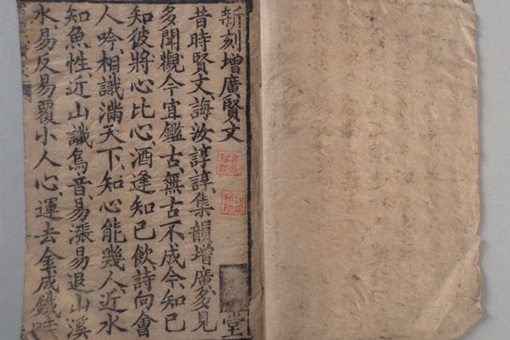 新刻增廣賢文
堂
昔時賢文誨汝諄諄集韻增廣多見
多聞觀今宜鑑古無古不成今知己
知彼將心比心酒逢知己飲詩向會
人吟相識滿天下知心能幾人近水
知魚性近山識鳥音易漲易退山溪
水易反易覆小人心運去金成鐵